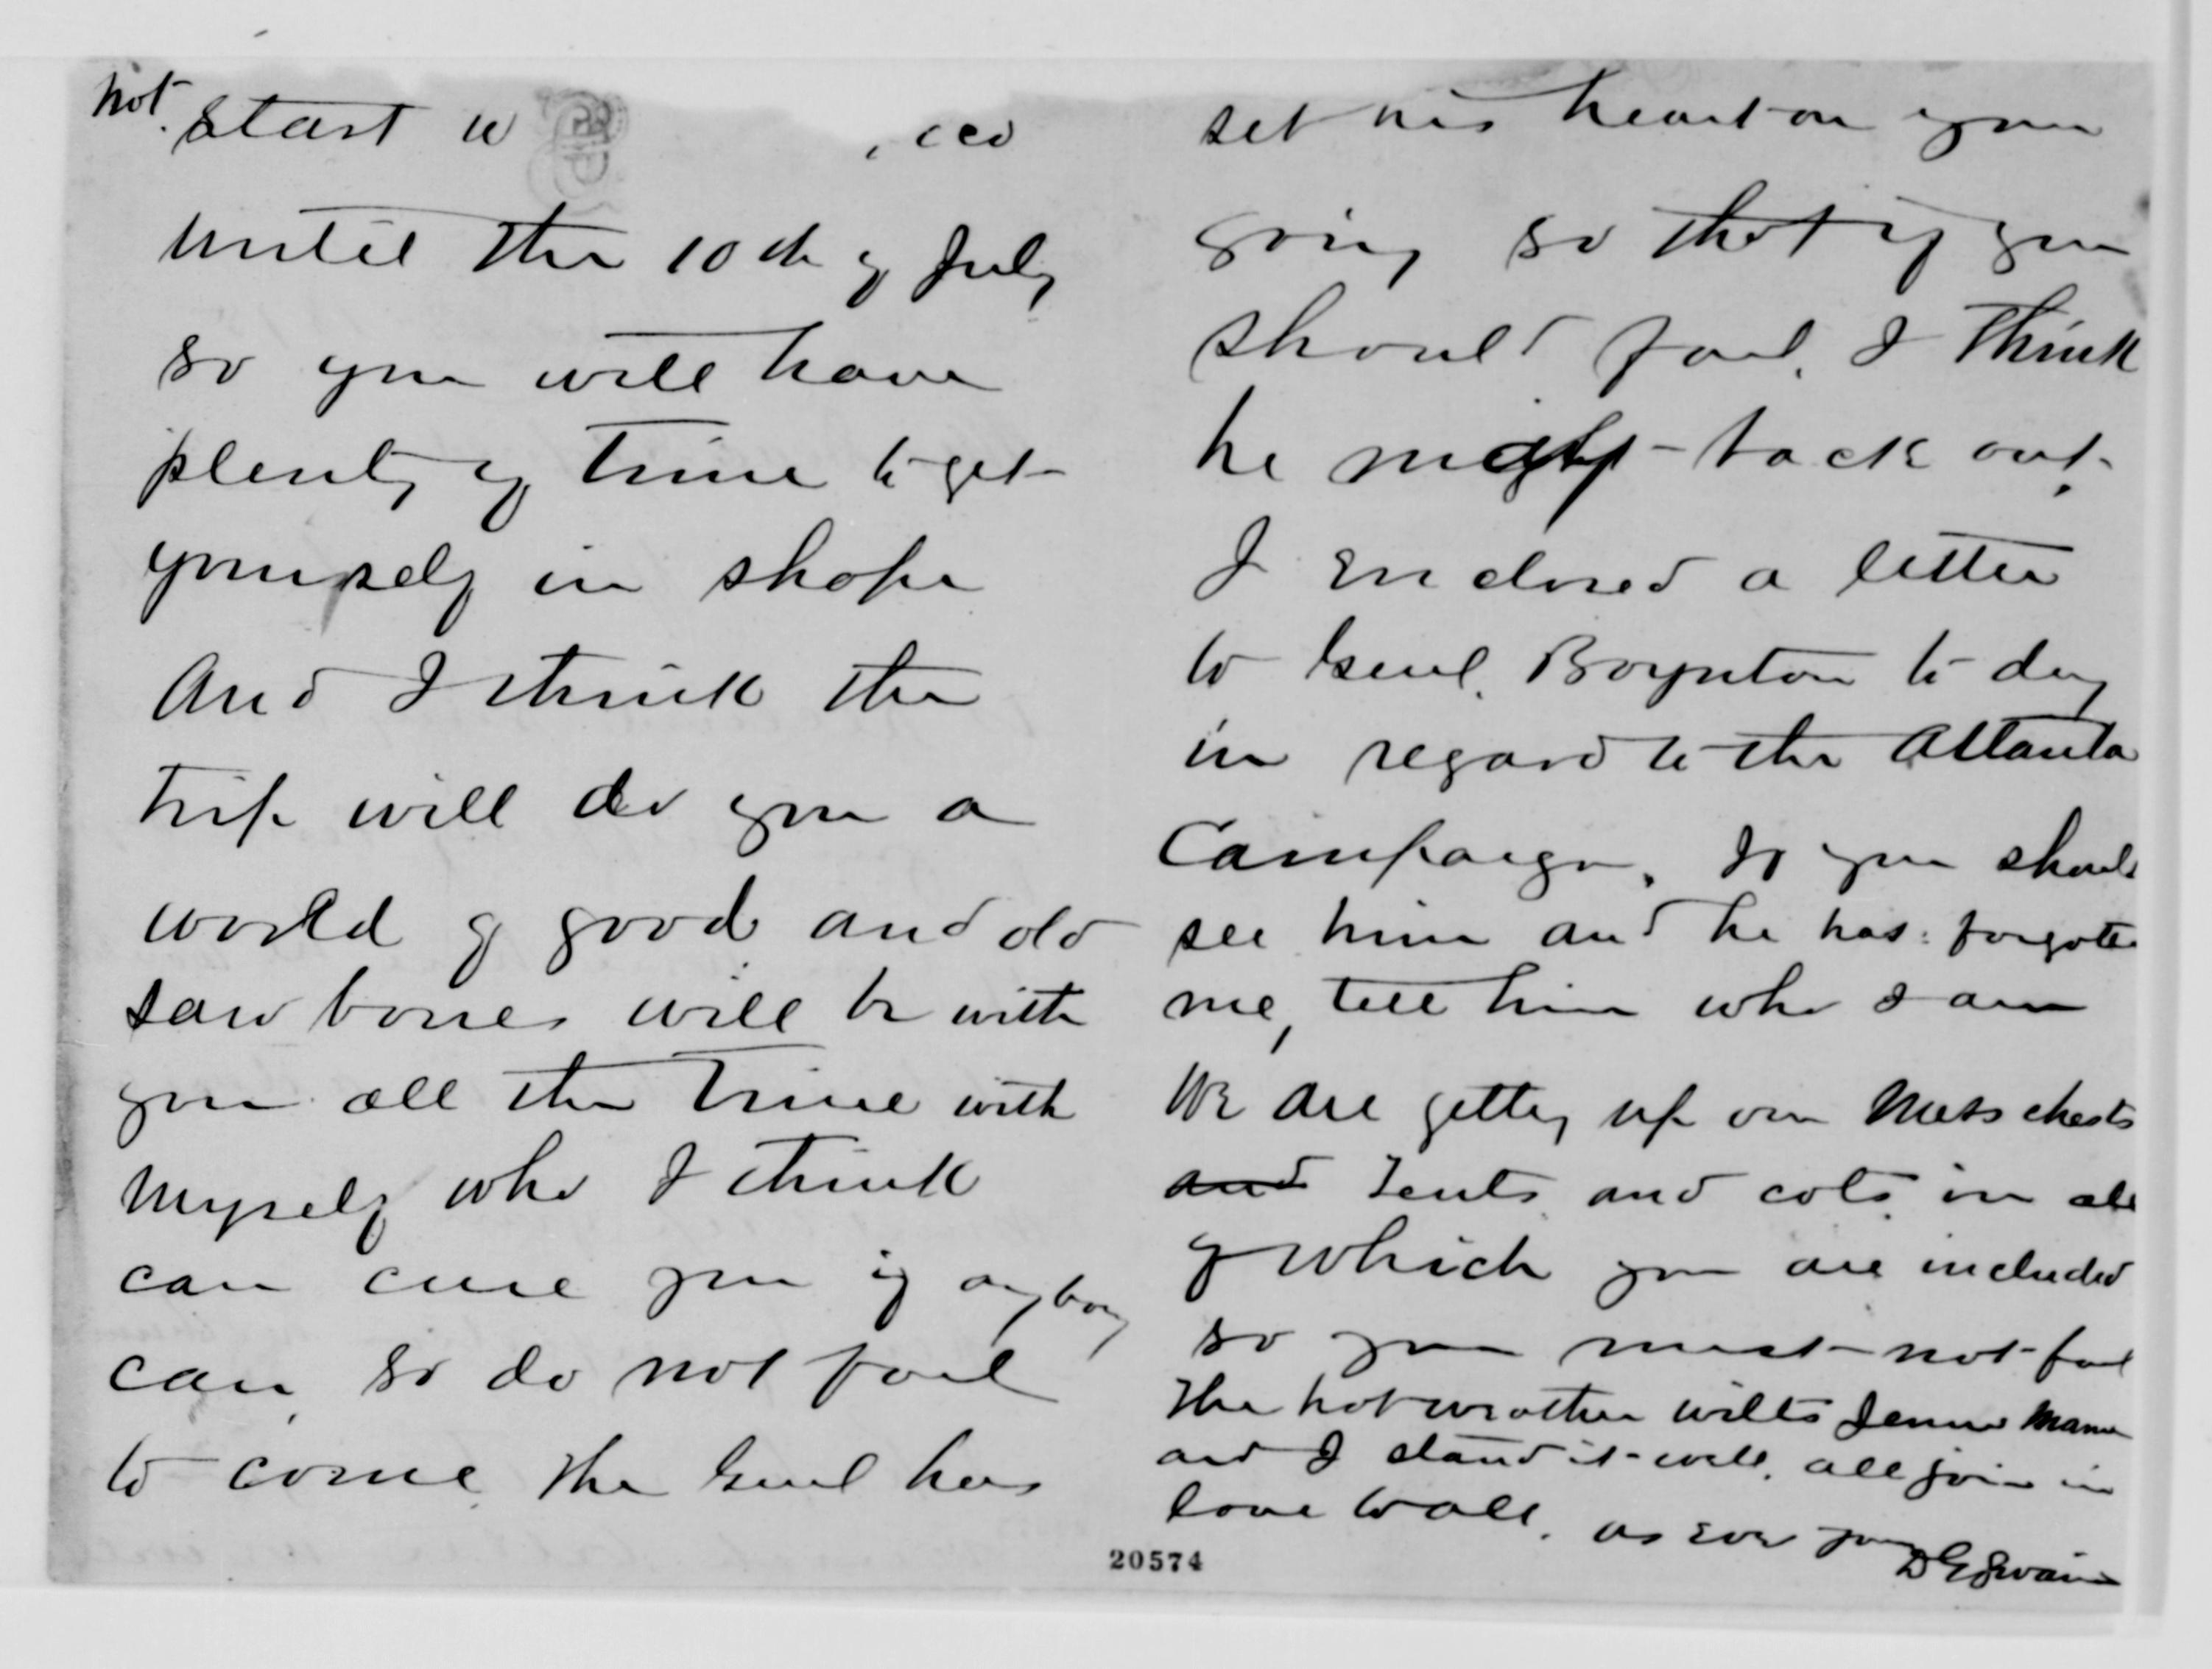 not start
until the 10th of July
so you will have
plenty of time to get
yourself in shape
And I think the
trip will do you a
world of good and old
saw bones will be with
you all the time with
myself who I think
can cure you if anybody
can, so do not fail
to come. The Genl has
set his heart on your
going so that if you
should fail, I think
he might back out.
I enclosed a letter
to Genl. Boynton to day
in regard to the Atlanta
Campaign. If you should
see him and he has forgoten
me, tell him who I am
We are getting up our Mess chests
and Tents and cots in all
of which you are included
so you must not fail
The hot weather wilts Jennie Mame
and I stand it well. all join in
love to all. as ever yours
D G Swaim
20574